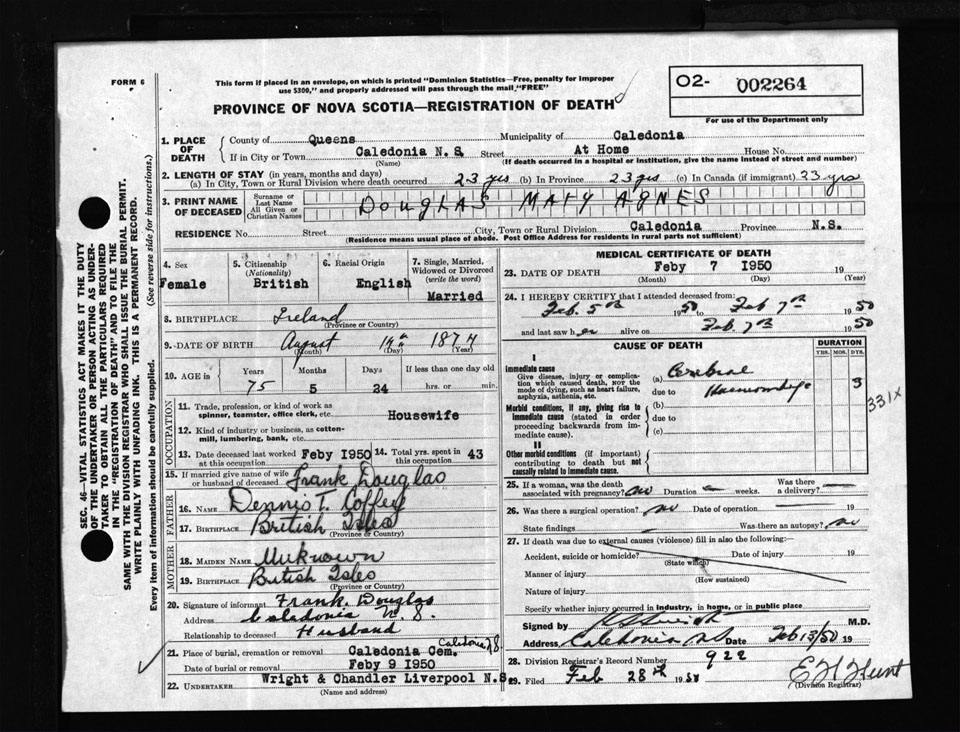 FORM 6
This form if placed in an envelope, on which is printed "Dominion Statistics—Free, penalty for improper
use $300," and properly addressed will pass through the mail "FREE"
O2- 002264
For use of the Department only
PROVINCE OF NOVA SCOTIA—REGISTRATION OF DEATH
SEC. 46—VITAL STATISTICS ACT MAKES IT THE DUTY
OF THE UNDERTAKER OR PERSON ACTING AS UNDER-
TAKER TO OBTAIN ALL THE PARTICULARS REQUIRED
IN THE "REGISTRATION OF DEATH" AND TO FILE THE
SAME WITH THE DIVISION REGISTRAR WHO SHALL ISSUE THE BURIAL PERMIT.
WRITE PLAINLY WITH UNFADING INK. THIS IS A PERMANENT RECORD.
Every item of information should be carefully supplied. (See reverse side for instructions.)
1. PLACE OF DEATH County of Queens Municipality of Caledonia
If in City or Town Caledonia N.S. Street At Home House No.
(Name) (If death occurred in a hospital or institution, give the name instead of street and number)
2. LENGTH OF STAY (in years, months and days)
(a) In City, Town or Rural Division where death occurred 23 yrs (b) In Province 23 yrs (c) In Canada (if immigrant) 23 yrs
3. PRINT NAME OF DECEASED Surname or Last Name All Given or Christian Names DOUGLAS MARY AGNES
RESIDENCE No. Street City, Town or Rural Division Caledonia Province N.S.
(Residence means usual place of abode. Post Office Address for residents in rural parts not sufficient)
4. Sex Female
5. Citizenship (Nationality) British
6. Racial Origin English
7. Single, Married, Widowed or Divorced (write the word) Married
8. BIRTHPLACE Ireland
(Province or Country)
9. DATE OF BIRTH August 14th 1874
(Month) (Day) (Year)
10. AGE in Years Months Days If less than one day old
75 5 24 hrs. or min.
OCCUPATION
11. Trade, profession, or kind of work as
spinner, teamster, office clerk, etc. Housewife
12. Kind of industry or business, as cotton-
mill, lumbering, bank, etc.
13. Date deceased last worked at this occupation Feby I950 14. Total yrs. spent in this occupation 43
15. If married give name of wife or husband of deceased Frank Douglas
FATHER
16. NAME Dennis T. Coffey
17. BIRTHPLACE British Isles
(Province or Country)
MOTHER
18. MAIDEN NAME Unknown
19. BIRTHPLACE British Isles
(Province or Country)
20. Signature of informant Frank Douglas
Address Caledonia N.S.
Relationship to deceased Husband
21. Place of burial, cremation or removal Caledonia Cem.
Date of burial or removal Feby 9 I950
22. UNDERTAKER Wright & Chandler Liverpool N.S.
(Name and address)
MEDICAL CERTIFICATE OF DEATH
23. DATE OF DEATH Feby 7 I950 19
(Month) (Day) (Year)
24. I HEREBY CERTIFY that I attended deceased from:
Feb. 5th 1950 to Feb 7th 1950
and last saw her alive on Feb. 7th 1950
CAUSE OF DEATH
DURATION
YRS. MOS. DYS.
I
Immediate cause
Give disease, injury or complica-
tion which caused death, NOT the
mode of dying, such as heart failure,
asphyxia, asthenia, etc.
(a) Cerebral
due to Haemorrhage 3
331X
Morbid conditions, if any, giving rise to
immediate cause (stated in order
proceeding backwards from im-
mediate cause).
(b)
due to
(c)
II
Other morbid conditions (if important)
contributing to death but not
causally related to immediate cause.
25. If a woman, was the death associated with pregnancy? no Duration weeks. Was there a delivery?
26. Was there a surgical operation? no Date of operation 19
State findings Was there an autopsy? no
27. If death was due to external causes (violence) fill in also the following:—
Accident, suicide or homicide? Date of injury 19
(State which)
Manner of injury
(How sustained)
Nature of injury
Specify whether injury occurred in industry, in home, or in public place
Signed by M.D.
Address Caledonia N.S. Date Feb 13/50 19
28. Division Registrar's Record Number 922
29. Filed Feb 28th 1950 E H Hunt
(Division Registrar)